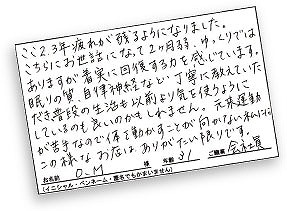 ここ2.3年疲れが残るようになりました。
こちらにお世話になって2ヶ月弱、ゆっくりでは
ありますが着実に回復する力を感じています。
眠りの質、自律神経など、丁寧に教えていた
だき普段の生活も以前より気を使うように
しているのも良いのかもしれません。元来運動
が苦手なので体を動かすことが向かない私に
この様なお店は、ありがたい限りです。
お名前 O.M 様 年齢 31 ご職業 会社員
(イニシャル・ペンネーム・匿名でもかまいません)